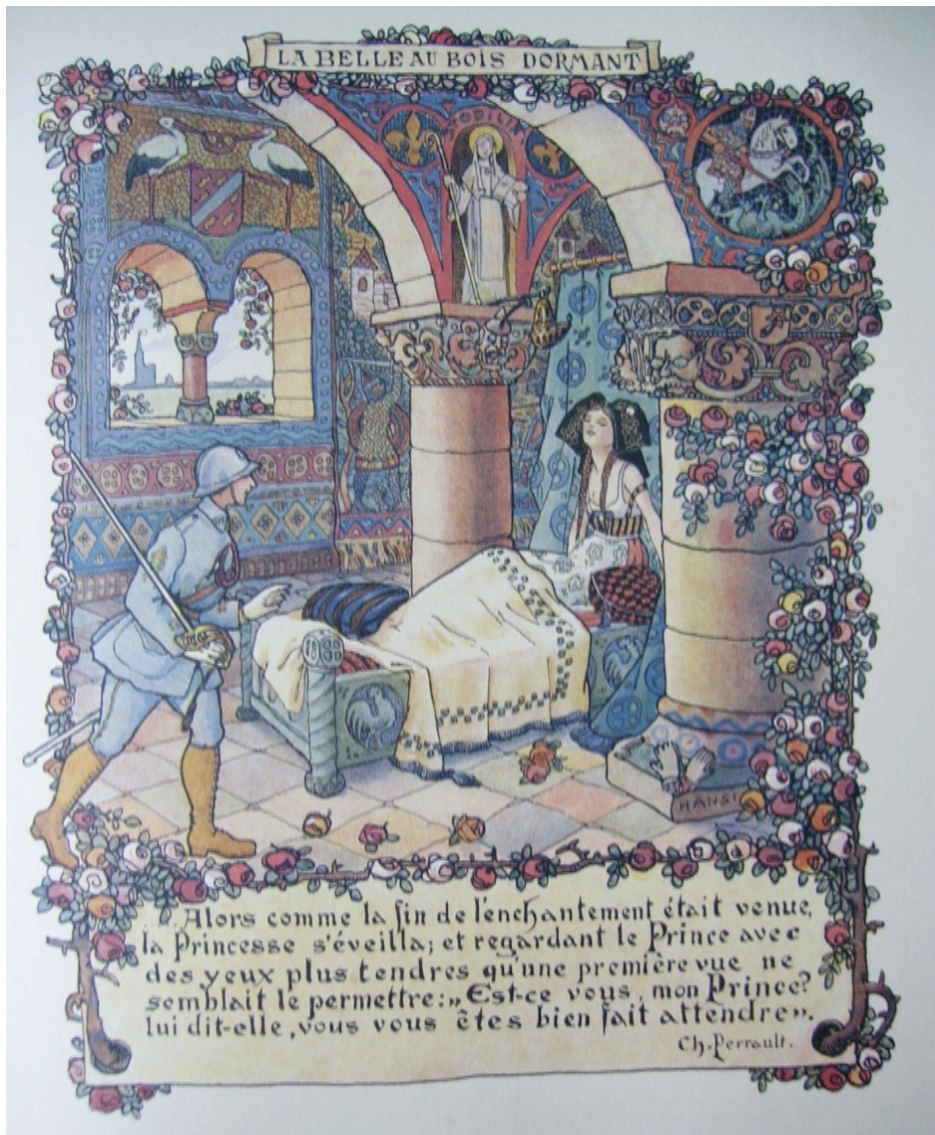 LA BELLE AU BOIS DORMANT
HANSI
....Alors comme la fin de l'enchantement était venue,
la Princesse s'éveilla; et regardant le Prince avec
des yeux plus tendres qu'une première vue ne
semblait le permettre:„Est-ce vous, mon Prince?
lui dit-elle, vous vous êtes bien fait attendre".
Ch. Perrault.